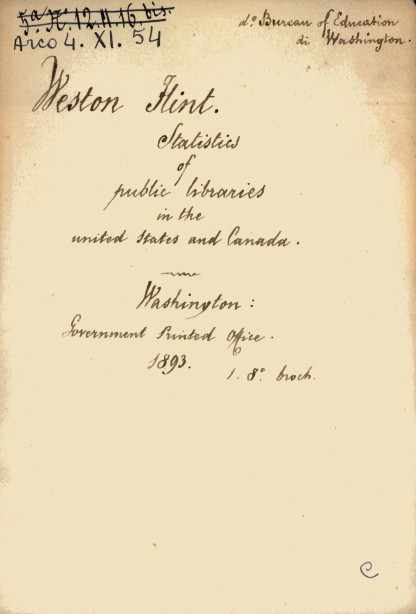 5a. K. 12. N. 16. bis.
Arco 4. XI. 54
do Bureau of Education
di Washington.
Weston Flint.
Statistics
of
public libraries
in the
united States and Canada.
Washington:
Government Printed Office.
1893. 1. 8º. broch.
C